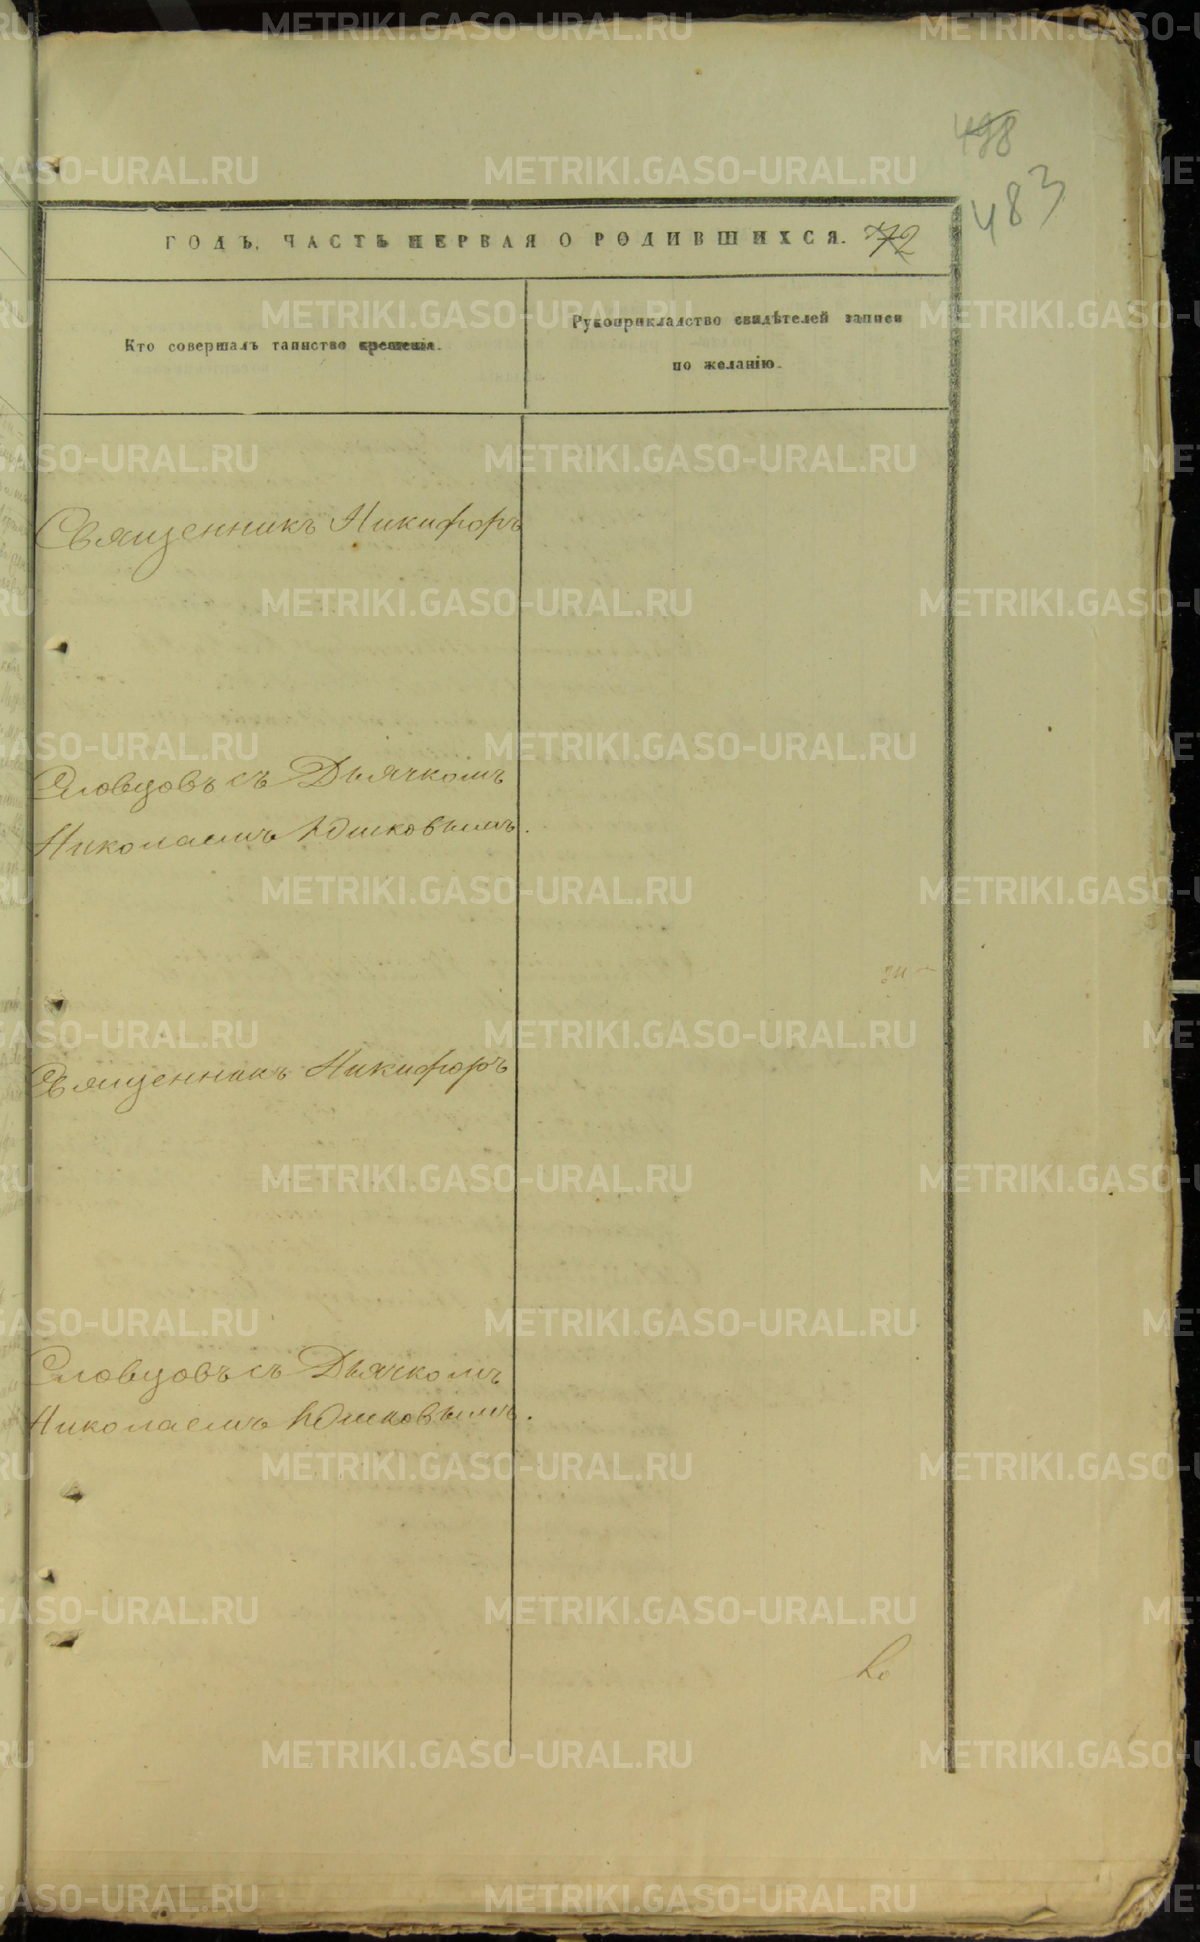 498
483
ГОДЪ, ЧАСТЬ ПЕРВАЯ О РОДИВШИХСЯ. 72
Кто совершалъ таинство крещенія.
Рукоприкладство свидѣтелей записи
по желанію.
Священникъ Никифоръ
Словцовъ съ Дьячкомъ
Николаемъ Юшковымъ.
Священникъ Никифоръ
Словцовъ съ Дьячкомъ
Николаемъ Юшковымъ.
METRIKI.GASO-URAL.RU